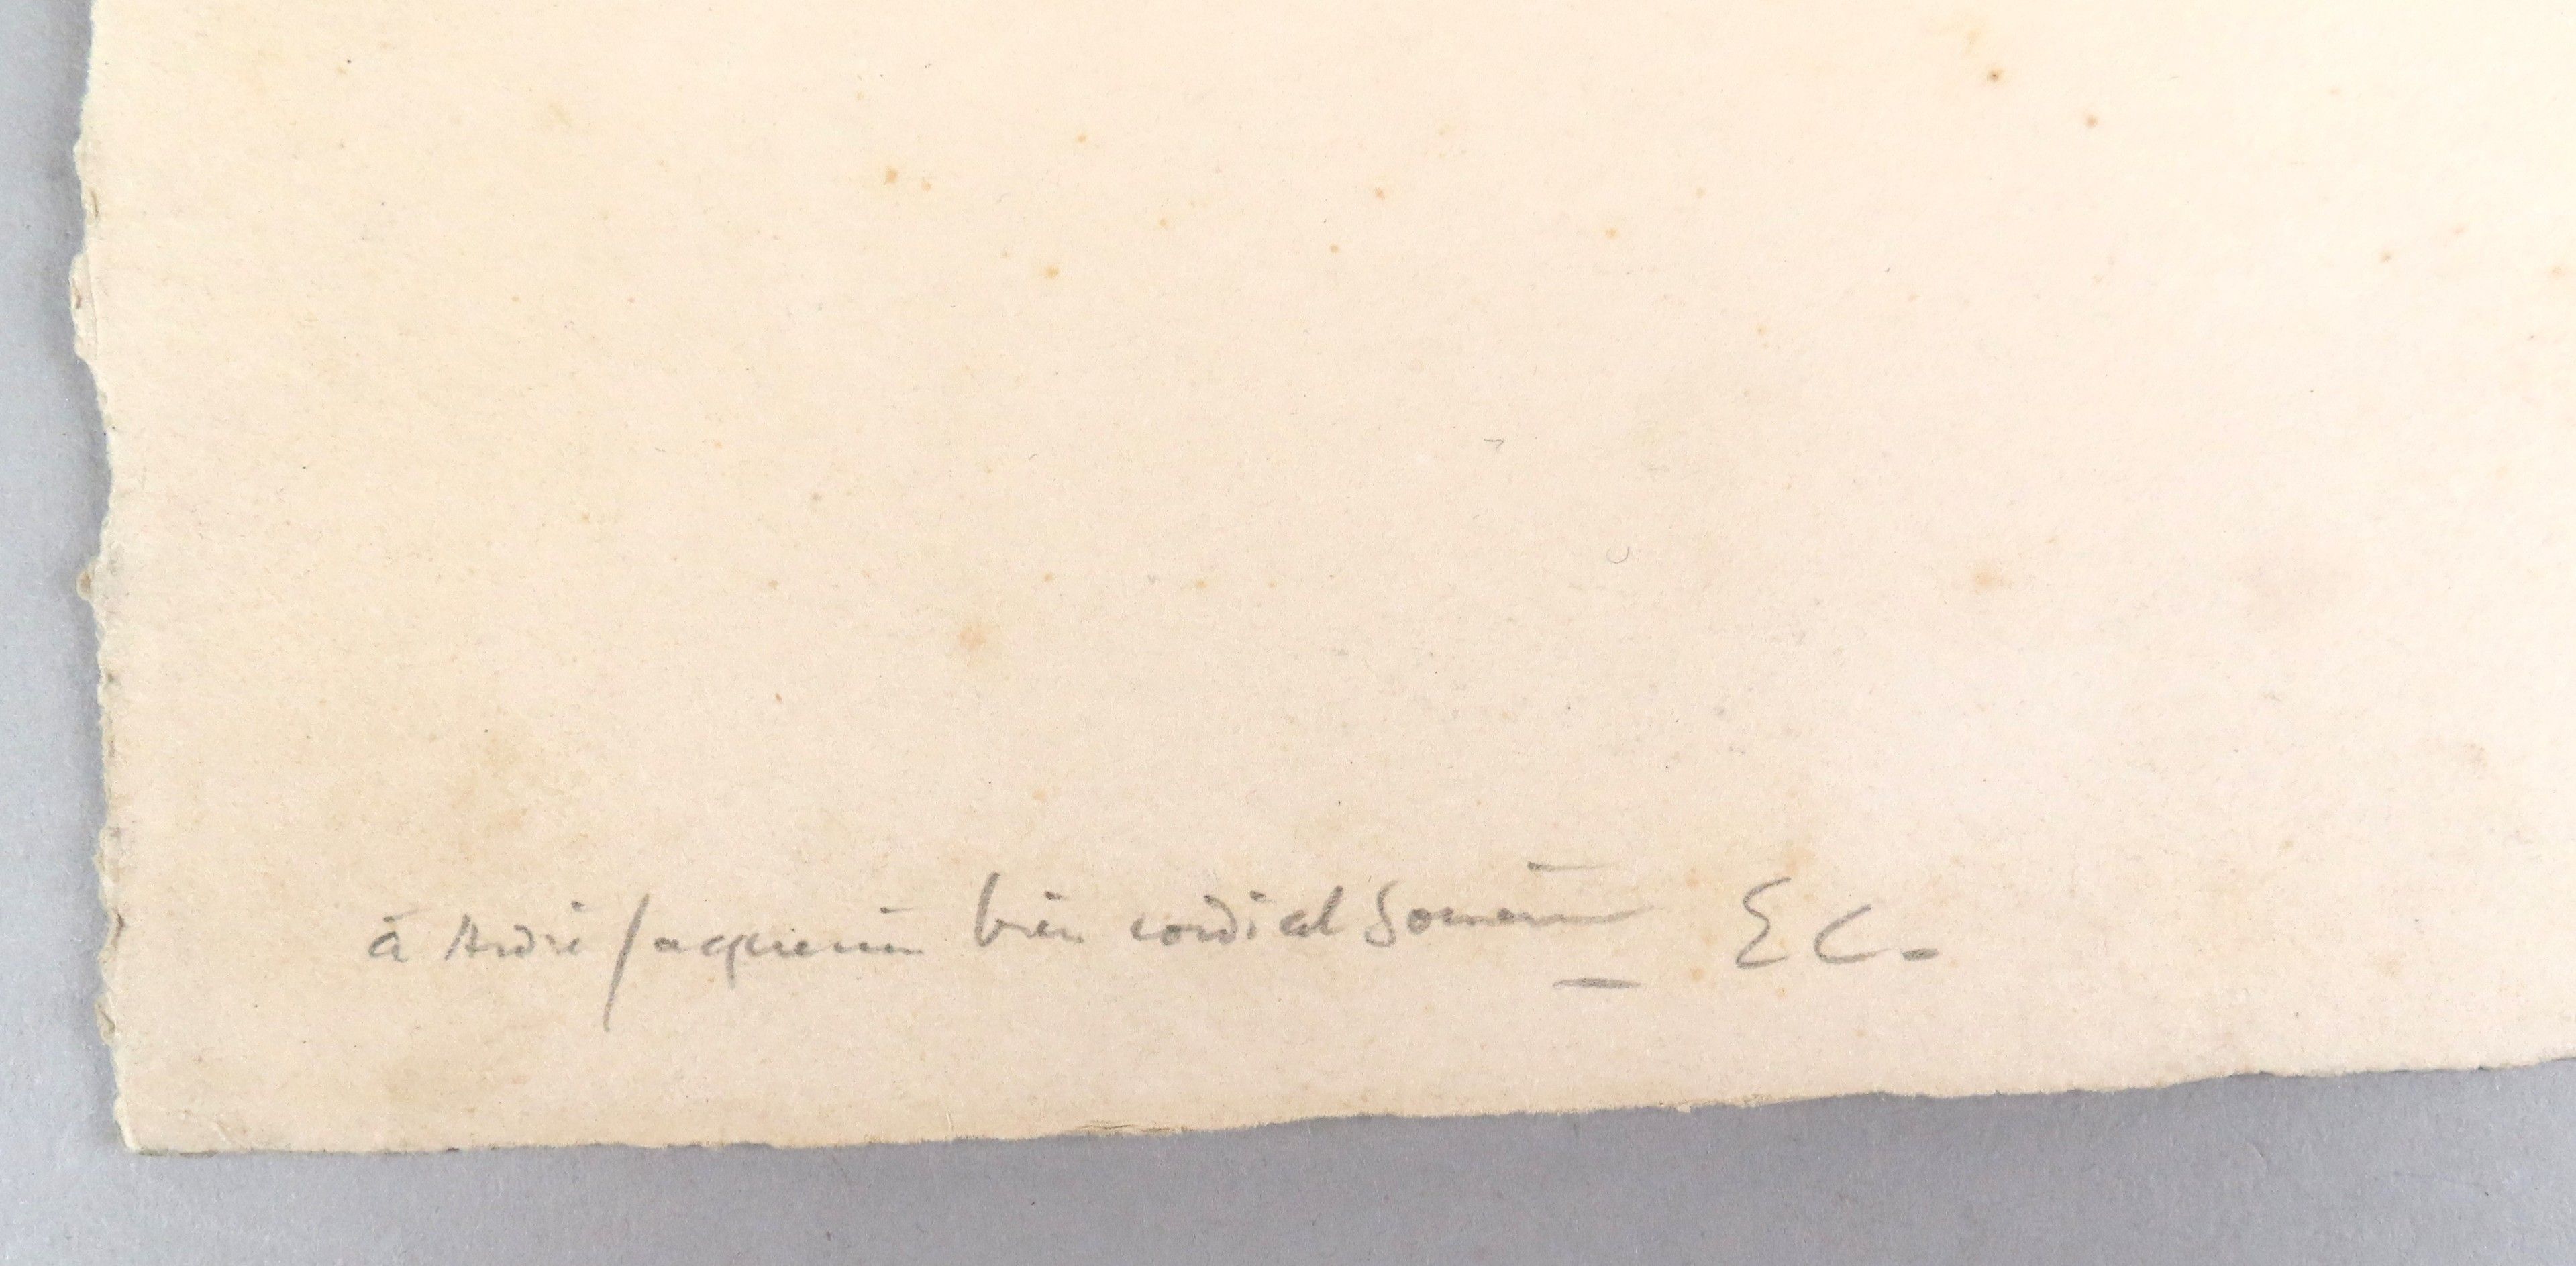 à André Jacquemin bien cordial Souvenir E C.